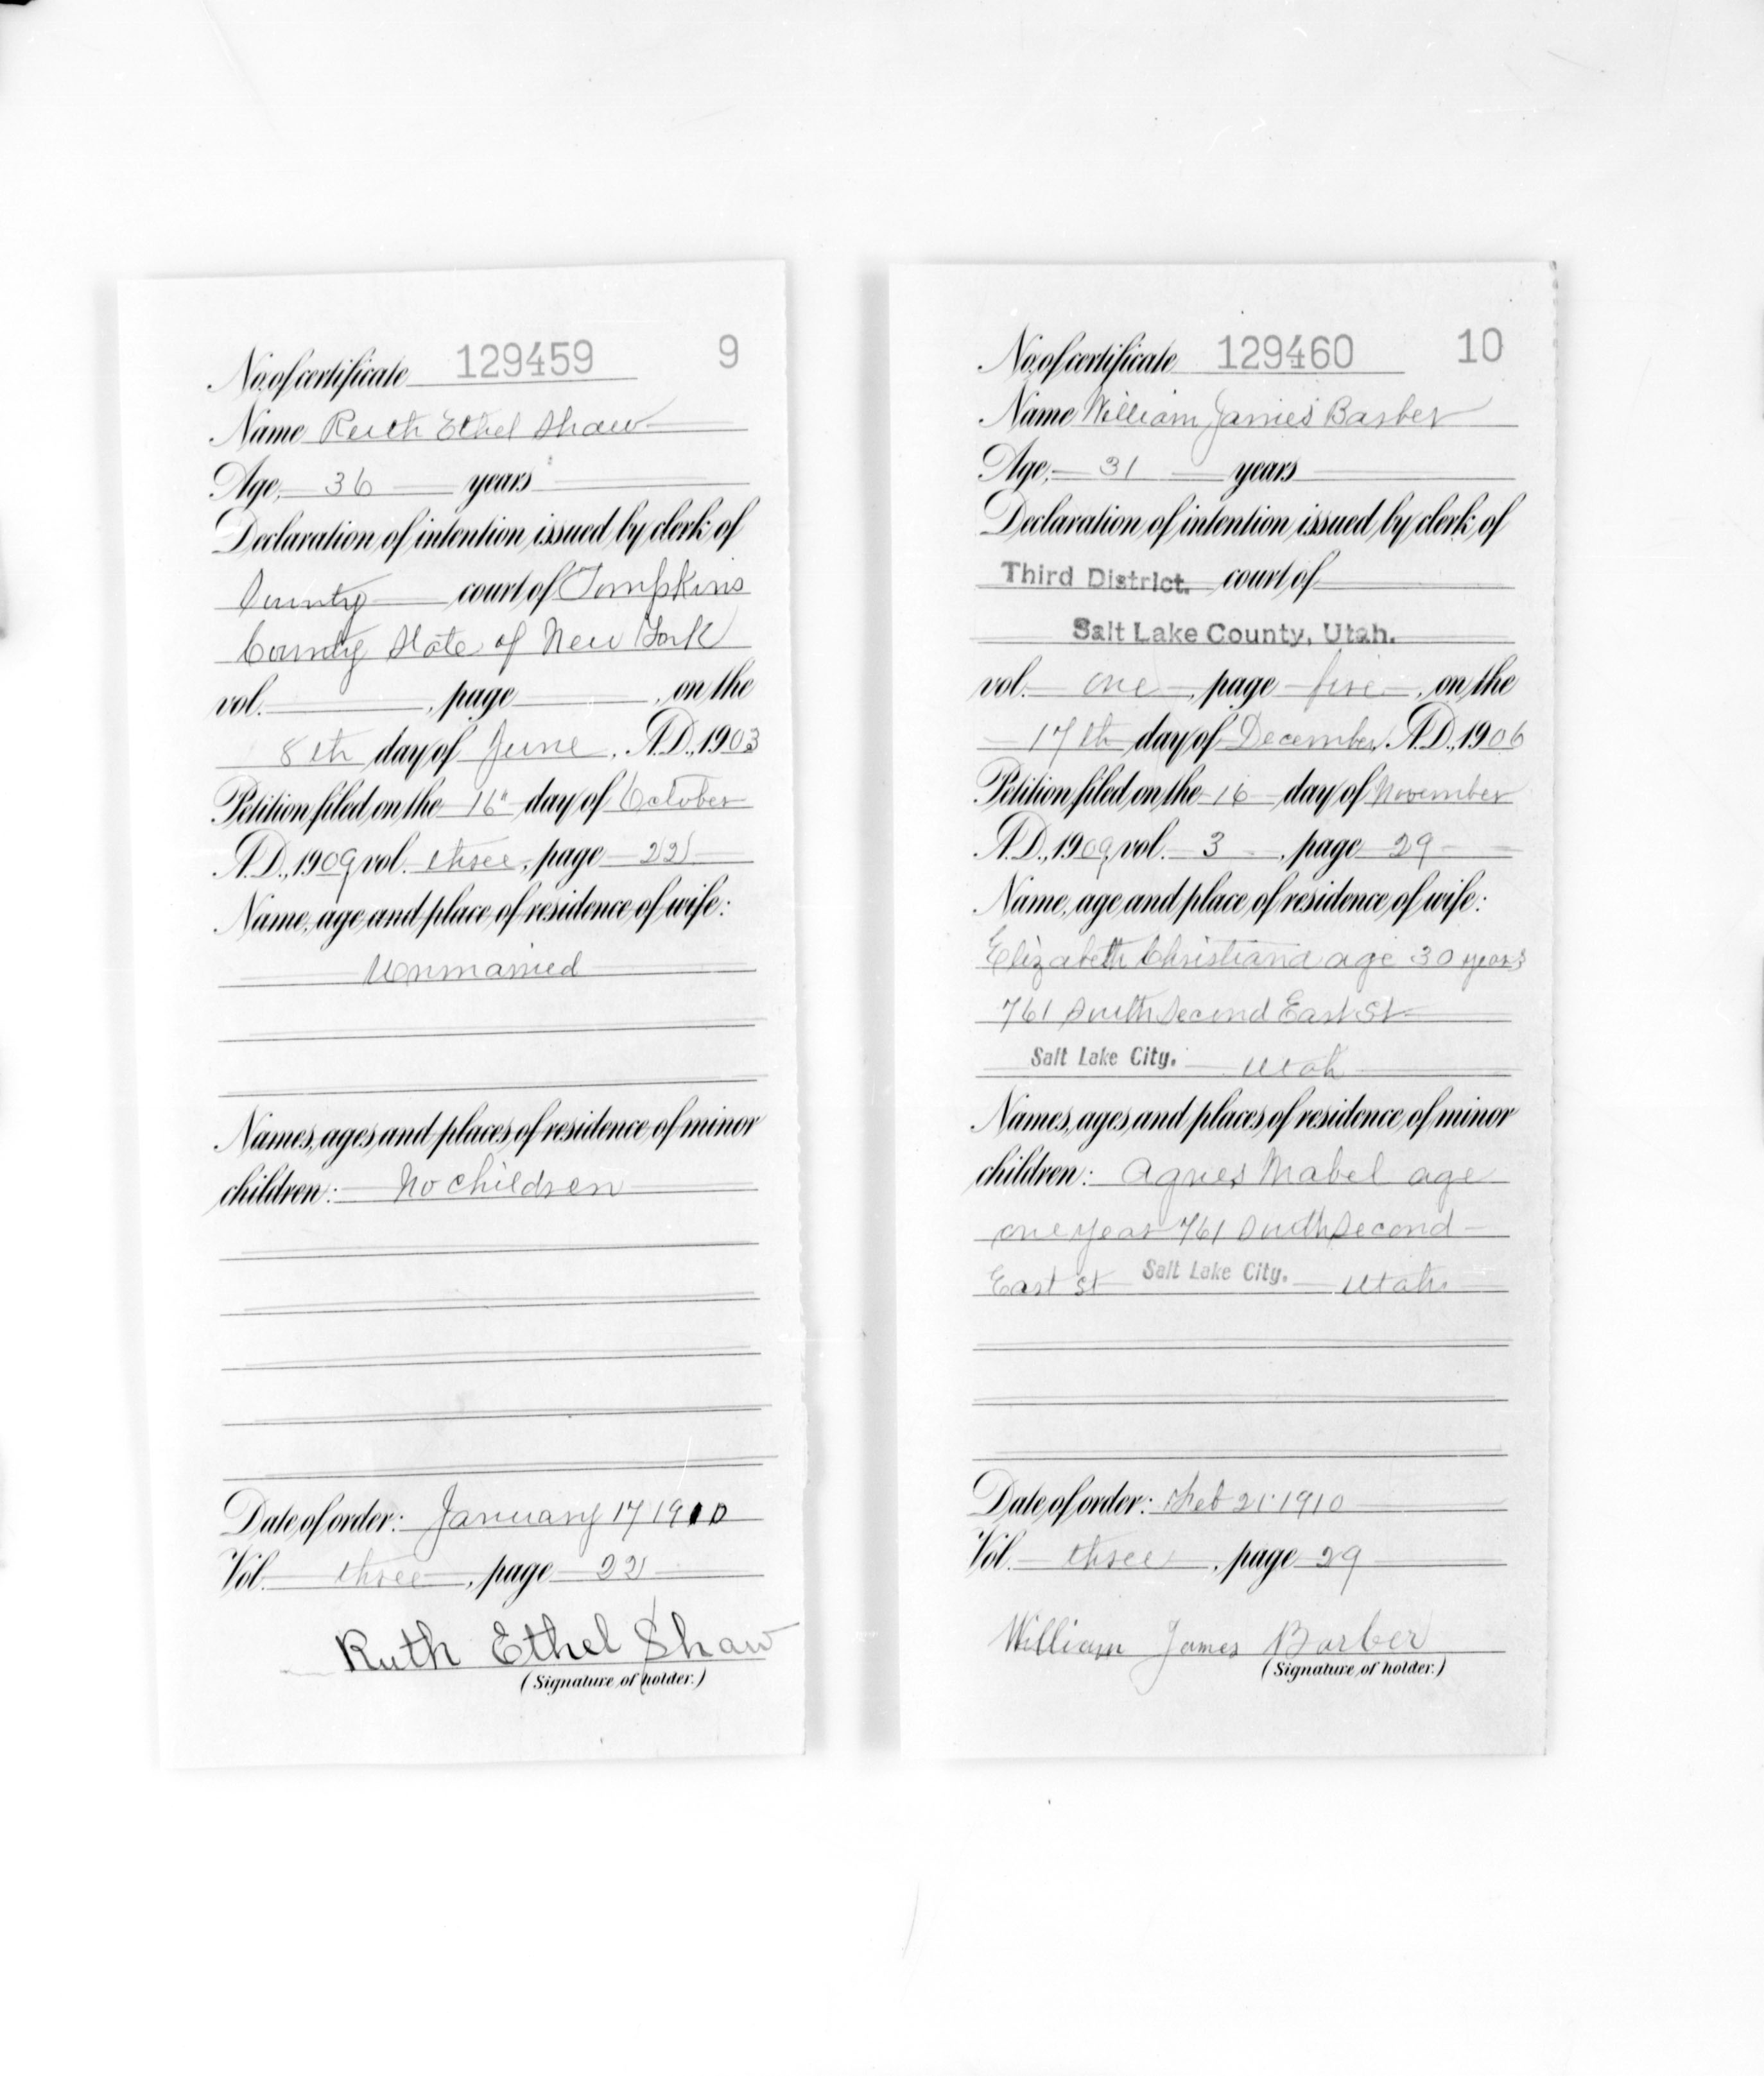 No. of certificate 129459 9
Name Ruth Ethel Shaw
Age, 36 years
Declaration of intention issued by clerk of
County court of Tompkins
County State of New York
vol. , page , on the
8th day of June, A.D., 1903
Petition filed on the 16" day of October
A.D., 1909 vol. three, page 22
Name, age and place of residence of wife:
Unmarried
Names, ages and places of residence of minor
children: No children
Date of order: January 17 1910
Vol. three, page 22
Ruth Ethel Shaw
(Signature of holder.)
No. of certificate 129460 10
Name William James Barber
Age, 31 years
Declaration of intention issued by clerk of
Third District. court of
Salt Lake County, Utah.
vol. one, page five, on the
17th day of December, A.D., 1906
Petition filed on the 16 day of November
A.D., 1909, vol. 3, page 29
Name, age and place of residence of wife:
Elizabeth Christiana age 30 years
761 South Second East St
Salt Lake City. Utah
Names, ages and places of residence of minor
children: Agnes Mabel age
one year 761 South Second
East St Salt Lake City. Utah
Date of order: Feb 21 1910
Vol. three, page 29
William James Barber
(Signature of holder.)